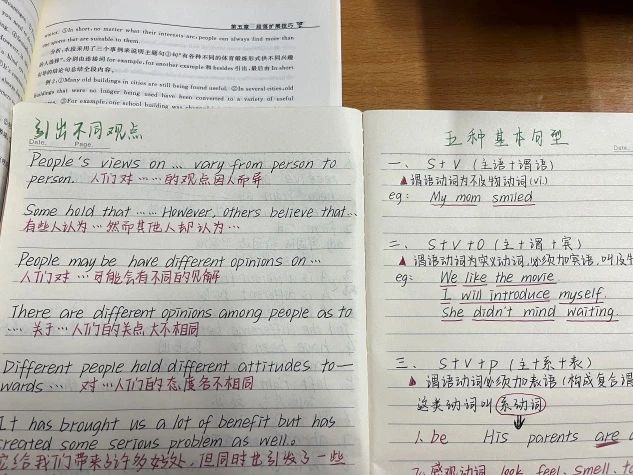 第五章 段落扩展技巧
⑤In short, no matter what their interests are, people can always find more than
one sports that are suitable to them.
分析:本段采用了三个事例来说明主题句①句"有各种不同的体育锻炼形式供不同兴趣
的人选择",分别由连接词 for example, for another example 和 besides 引出,最后由 In short
引导的结论句总结全段内容。
例2:①Many old buildings in cities are still being found useful. ②In several cities, old
buildings that were no longer being used have been converted to a variety of useful
③For example, one school building was
引出不同观点
Date. Page.
People's views on … vary from person to
person. 人们对……的观点因人而异
Some hold that …… However, others believe that…
有些人认为…然而其他人却认为…
People may be have different opinions on …
人们对…可能会有不同的见解
There are different opinions among people as to
… 关于…人们的关点大不相同
Different people hold different attitudes to-
wards … 对…人们的态度各不相同
It has brought us a lot of benefit but has
created some serious problem as well.
它给我们带来了许多好处,但同时也引发了一些
五种基本句型
Date.
一、 S+V (主语+谓语)
▲谓语动词为不及物动词(vi.)
eg: My mom smiled
二、 S+V+O (主+谓+宾)
▲谓语动词为实义动词,必须加宾语,叫及
eg: We like the movie
I will introduce myself.
She didn't mind waiting.
三、 S+V+P (主+系+表)
▲谓语动词必须加表语(构成复合谓
这类动词叫系动词
1. be His parents are
感观动词 look, feel, smell,